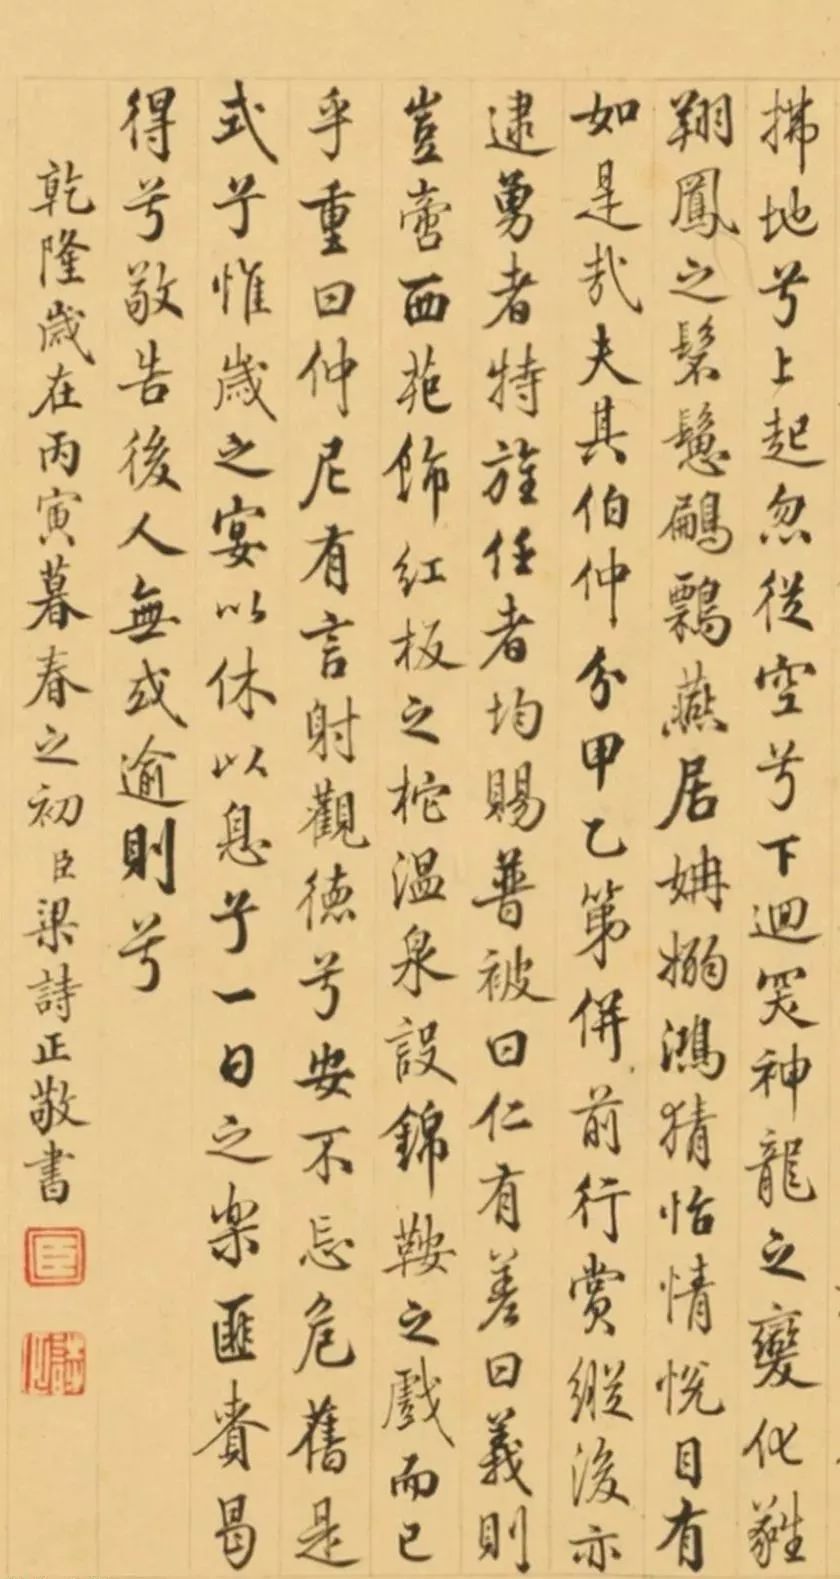 拂地兮上起忽從空兮下迴哭神龍之變化雖
翔鳳之髣髴鷫鷞燕居姌搦鴻猜怡情悅目有
如是哉夫其伯仲分甲乙第併前行賞縱後亦
逮勇者特旌任者均賜普被曰仁有差曰義則
豈啻西苑飾紅板之柁溫泉設錦鞍之戲而已
乎重曰仲尼有言射觀德兮安不忘危舊是
式兮惟歲之宴以休以息兮一日之樂匪貴曷
得兮敬告後人無或逾則兮
乾隆歲在丙寅暮春之初臣梁詩正敬書
臣